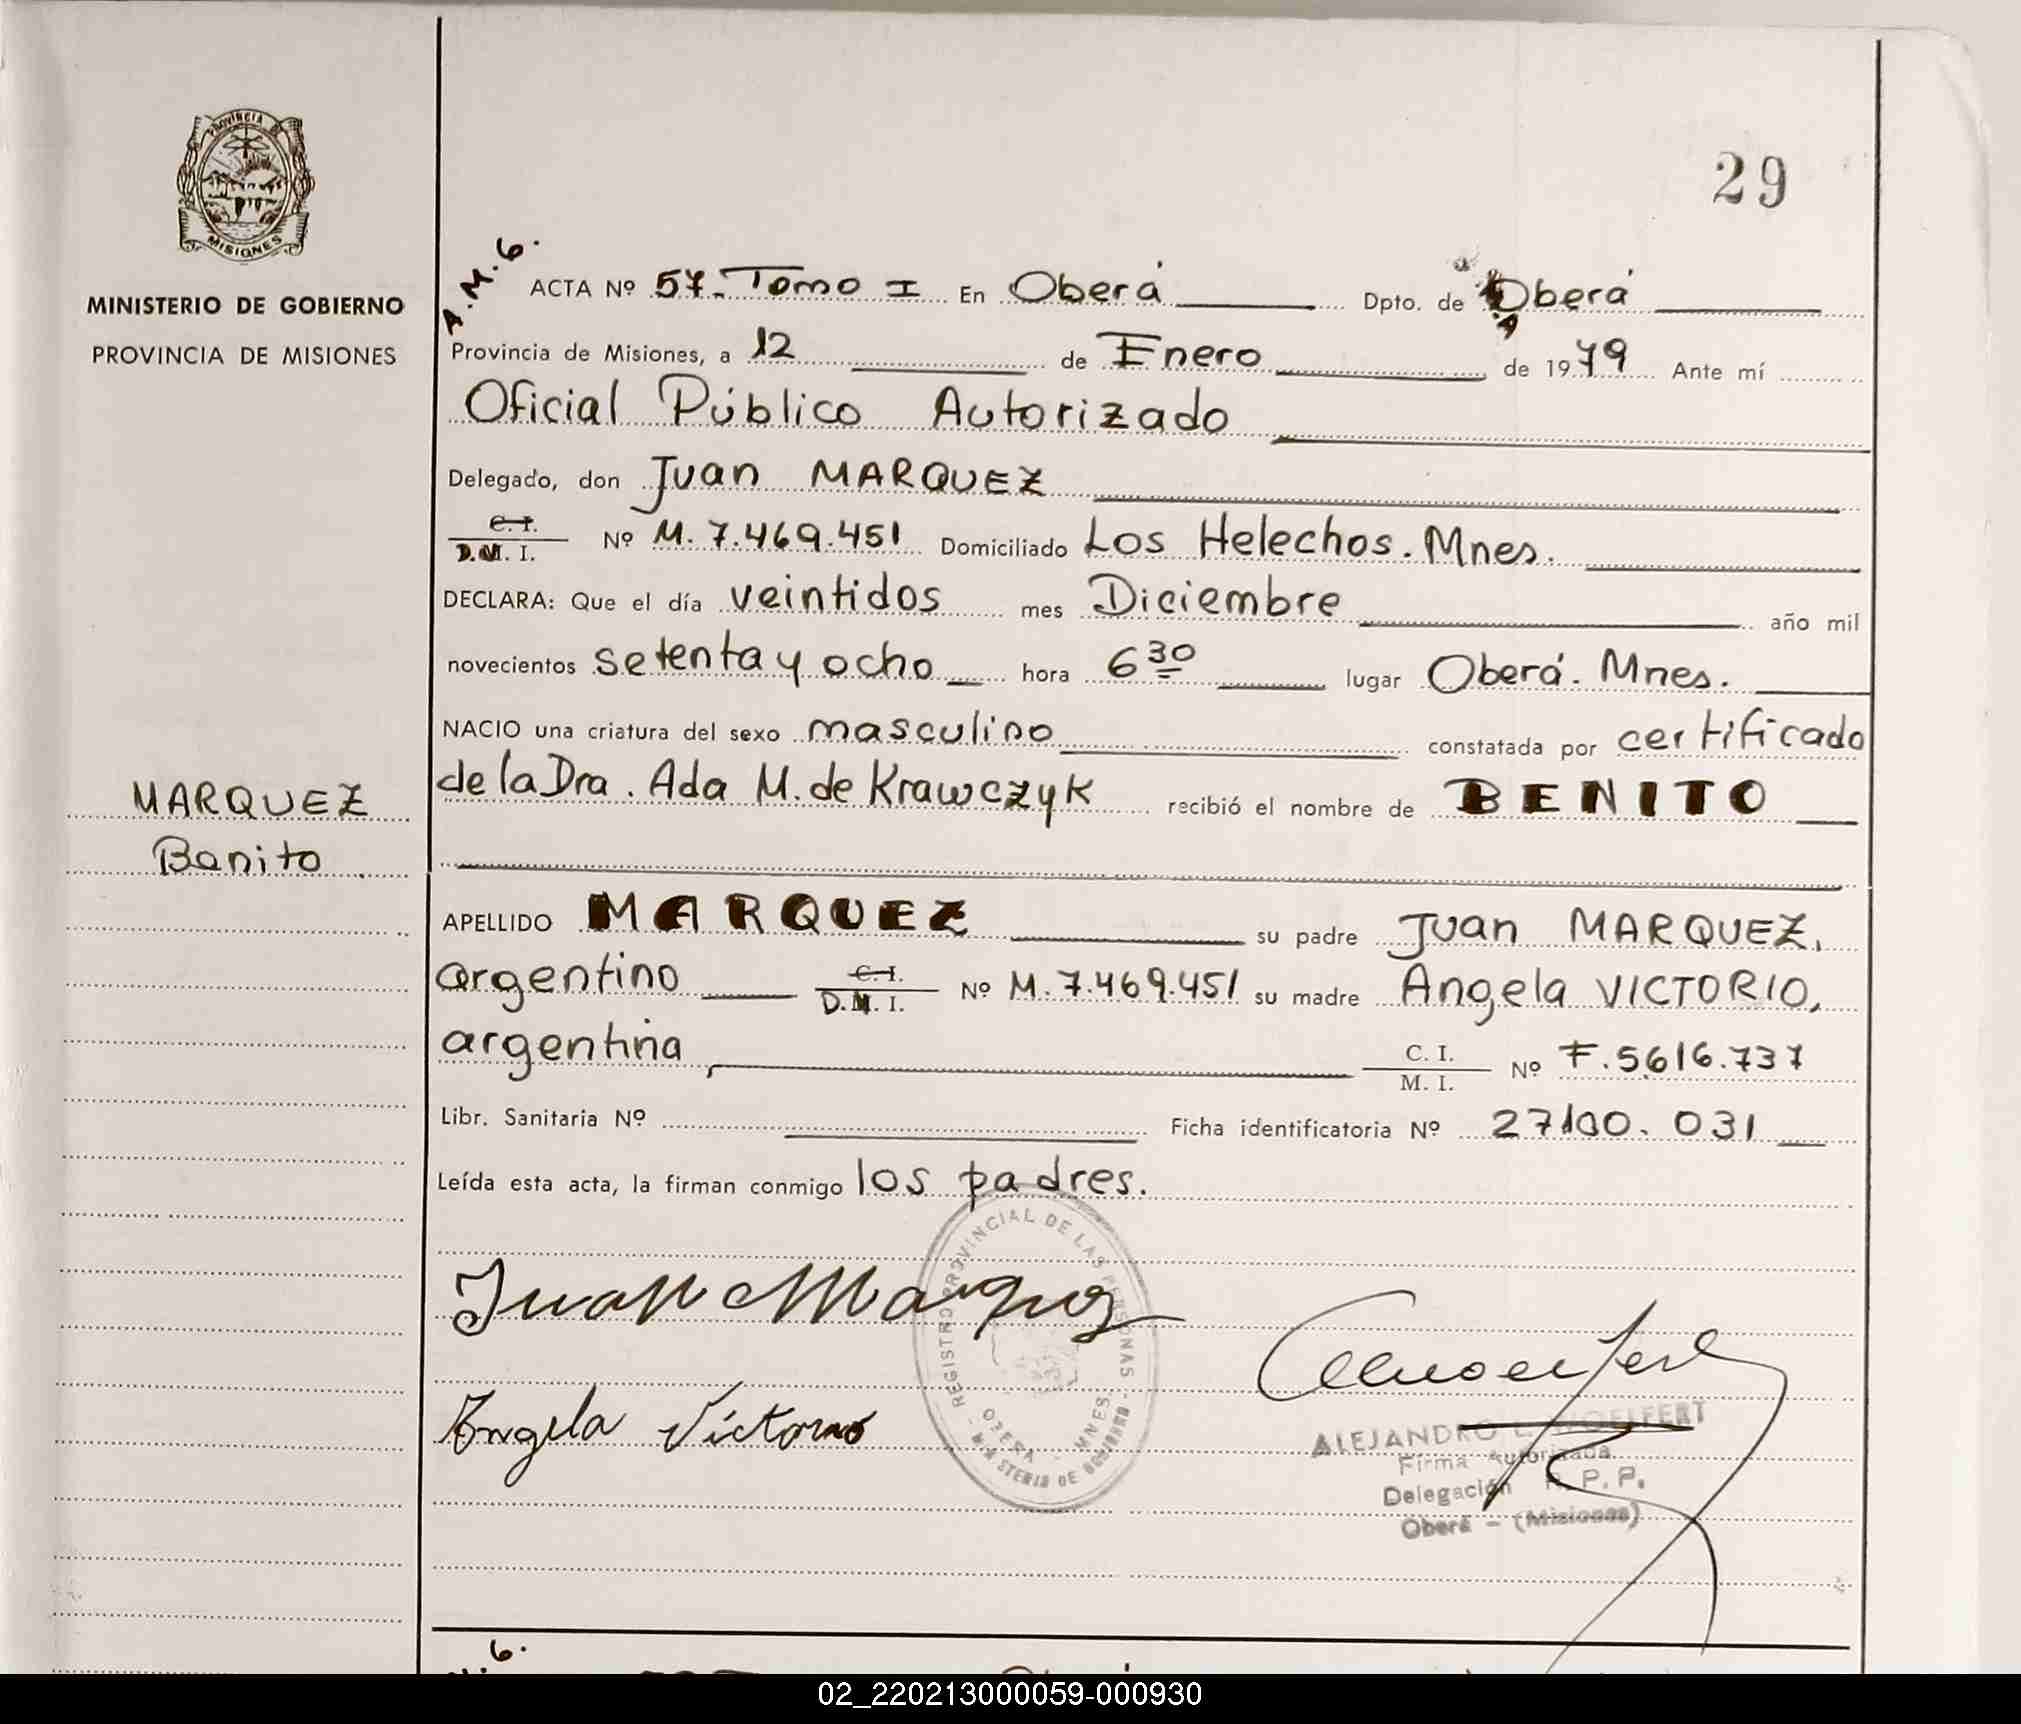 PROVINCIA DE
MISIONES
MINISTERIO DE GOBIERNO
PROVINCIA DE MISIONES
29
A.M.G.
ACTA Nº 57. Tomo I En Oberá Dpto. de Oberá
Provincia de Misiones, a 12 de Enero de 1979 Ante mí
Oficial Público Autorizado
Delegado, don Juan MARQUEZ
C. I.
D.M. I. Nº M. 7.469.451 Domiciliado Los Helechos. Mnes.
DECLARA: Que el día veintidos mes Diciembre año mil
novecientos setenta y ocho hora 6 30 lugar Oberá. Mnes.
NACIO una criatura del sexo masculino constatada por certificado
de la Dra. Ada M. de Krawczyk recibió el nombre de BENITO
MARQUEZ
Banito
APELLIDO MARQUEZ su padre Juan MARQUEZ,
argentino C. I.
D.M. I. Nº M. 7.469.451 su madre Angela VICTORIO,
argentina C. I.
M. I. Nº F. 5616.737
Libr. Sanitaria Nº Ficha identificatoria Nº 27100.031
Leída esta acta, la firman conmigo los padres.
REGISTRO PROVINCIAL DE LAS PERSONAS - MINISTERIO DE GOBIERNO -
OBERA - MNES.
Juan Marquez
Angela Victorio
ALEJANDRO L. WOELFERT
Firma Autorizada
Delegación R. P. P.
Oberá - (Misiones)
02_220213000059-000930